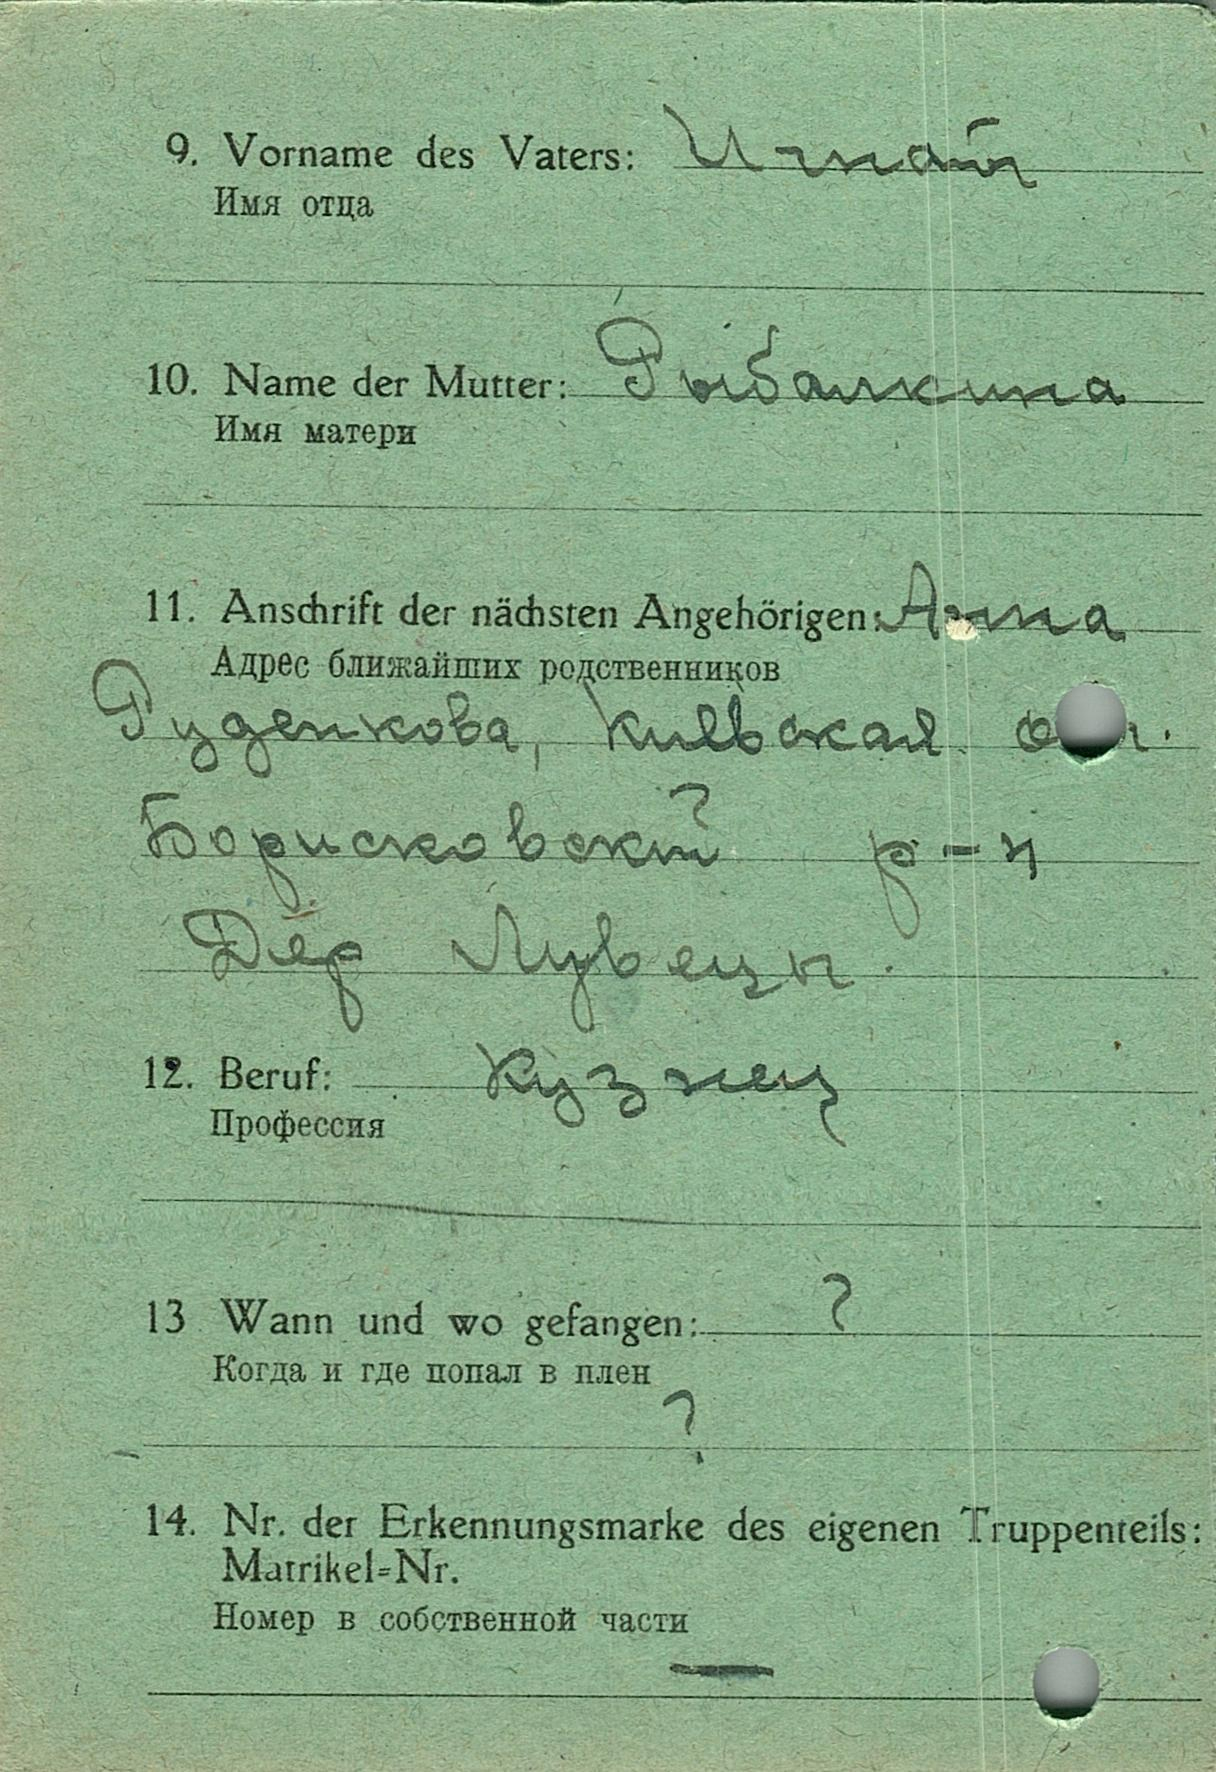 9. Vorname des Vaters: Игнат
Имя отца
10. Name der Mutter: Рыбалкина
Имя матери
11. Anschrift der nächsten Angehörigen: Анна
Адрес ближайших родственников
Руденкова, Киевская
Борисковский р-н
Дер Лувецы.
12. Beruf: Кузнец
Профессия
13 Wann und wo gefangen: ?
Когда и где попал в плен
?
14. Nr. der Erkennungsmarke des eigenen Truppenteils:
Matrikel=Nr.
Номер в собственной части
—